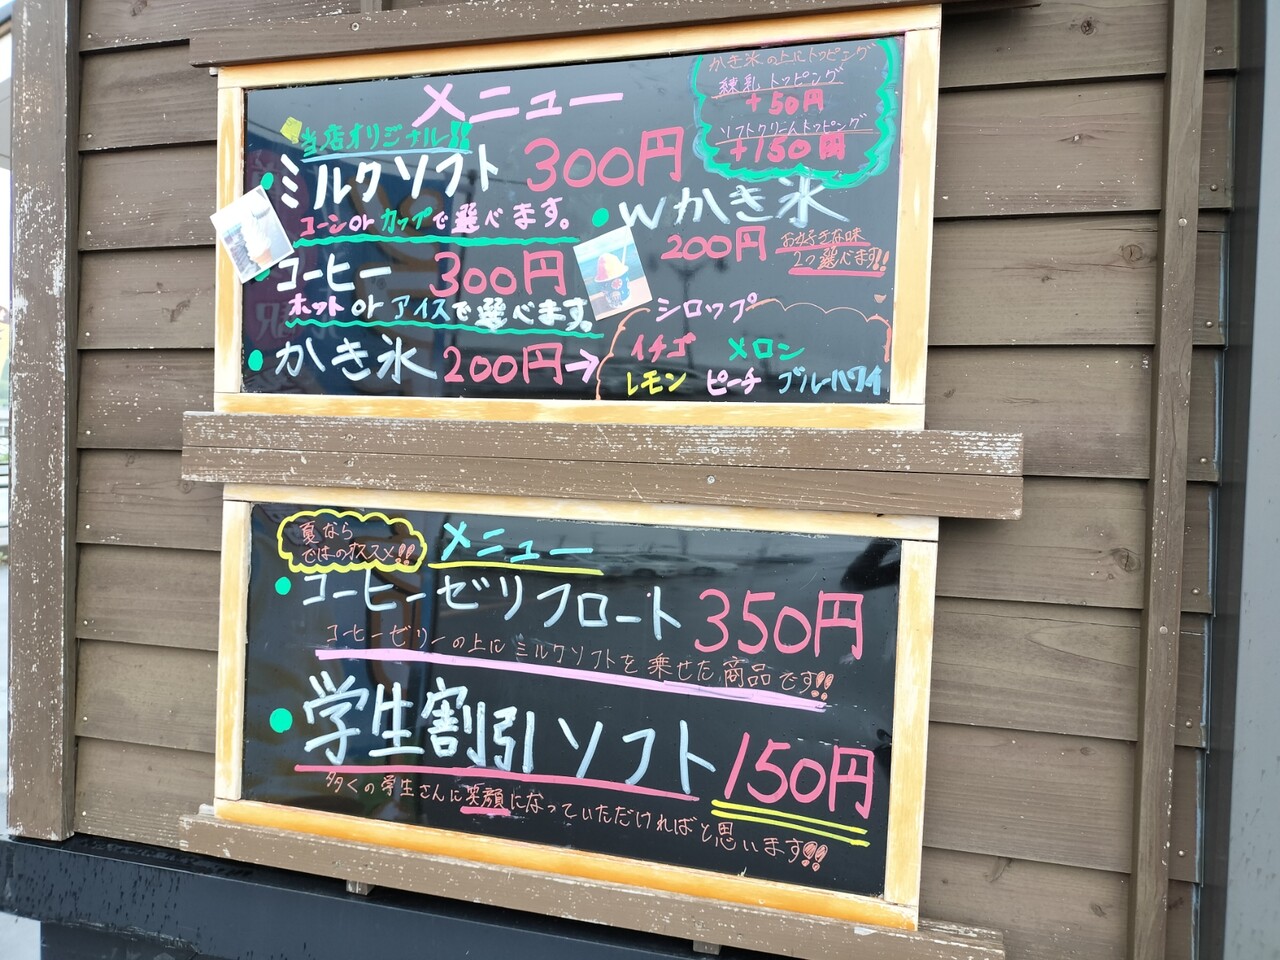 メニュー
当店オリジナル!!
ミルクソフト 300円
コーン or カップで選べます。
コーヒー 300円
ホット or アイスで選べます。
かき氷 200円→
かき氷の上にトッピング
練乳トッピング
+50円
ソフトクリームトッピング
+150円
Wかき氷
200円 お好きな味
2つ選べます!!
シロップ
イチゴ メロン
レモン ピーチ ブルーハワイ
夏なら
ではのオススメ!!
メニュー
コーヒーゼリフロート 350円
コーヒーゼリーの上にミルクソフトを乗せた商品です!!
学生割引ソフト 150円
多くの学生さんに笑顔になっていただければと思います!!